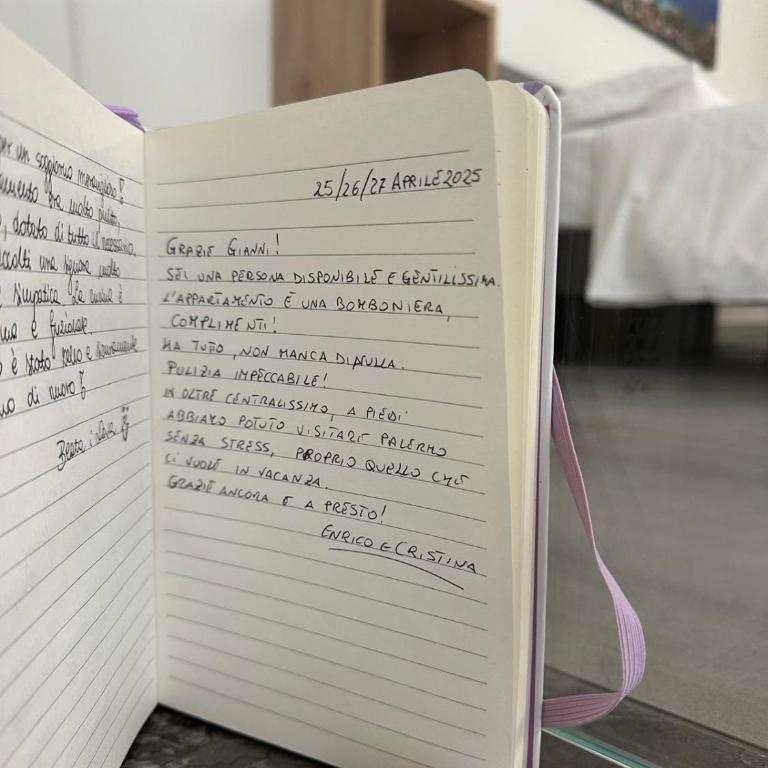 un soggiorno meraviglioso
molto pulito,
, dotato di tutto il necessario,
una signora molto
simpatica la cucina è
è funzionale
è stato bello e sicuramente
di nuovo
25/26/27 APRILE 2025
GRAZIE GIANNI!
SEI UNA PERSONA DISPONIBILE E GENTILISSIMA.
L'APPARTAMENTO È UNA BOMBONIERA,
COMPLIMENTI!
HA TUTO, NON MANCA DI NULLA.
PULIZIA IMPECCABILE!
IN OLTRE CENTRALISSIMO, A PIEDI
ABBIAMO POTUTO VISITARE PALERMO
SENZA STRESS, PROPRIO QUELLO CHE
CI VUOLE IN VACANZA.
GRAZIE ANCORA E A PRESTO!
ENRICO E CRISTINA